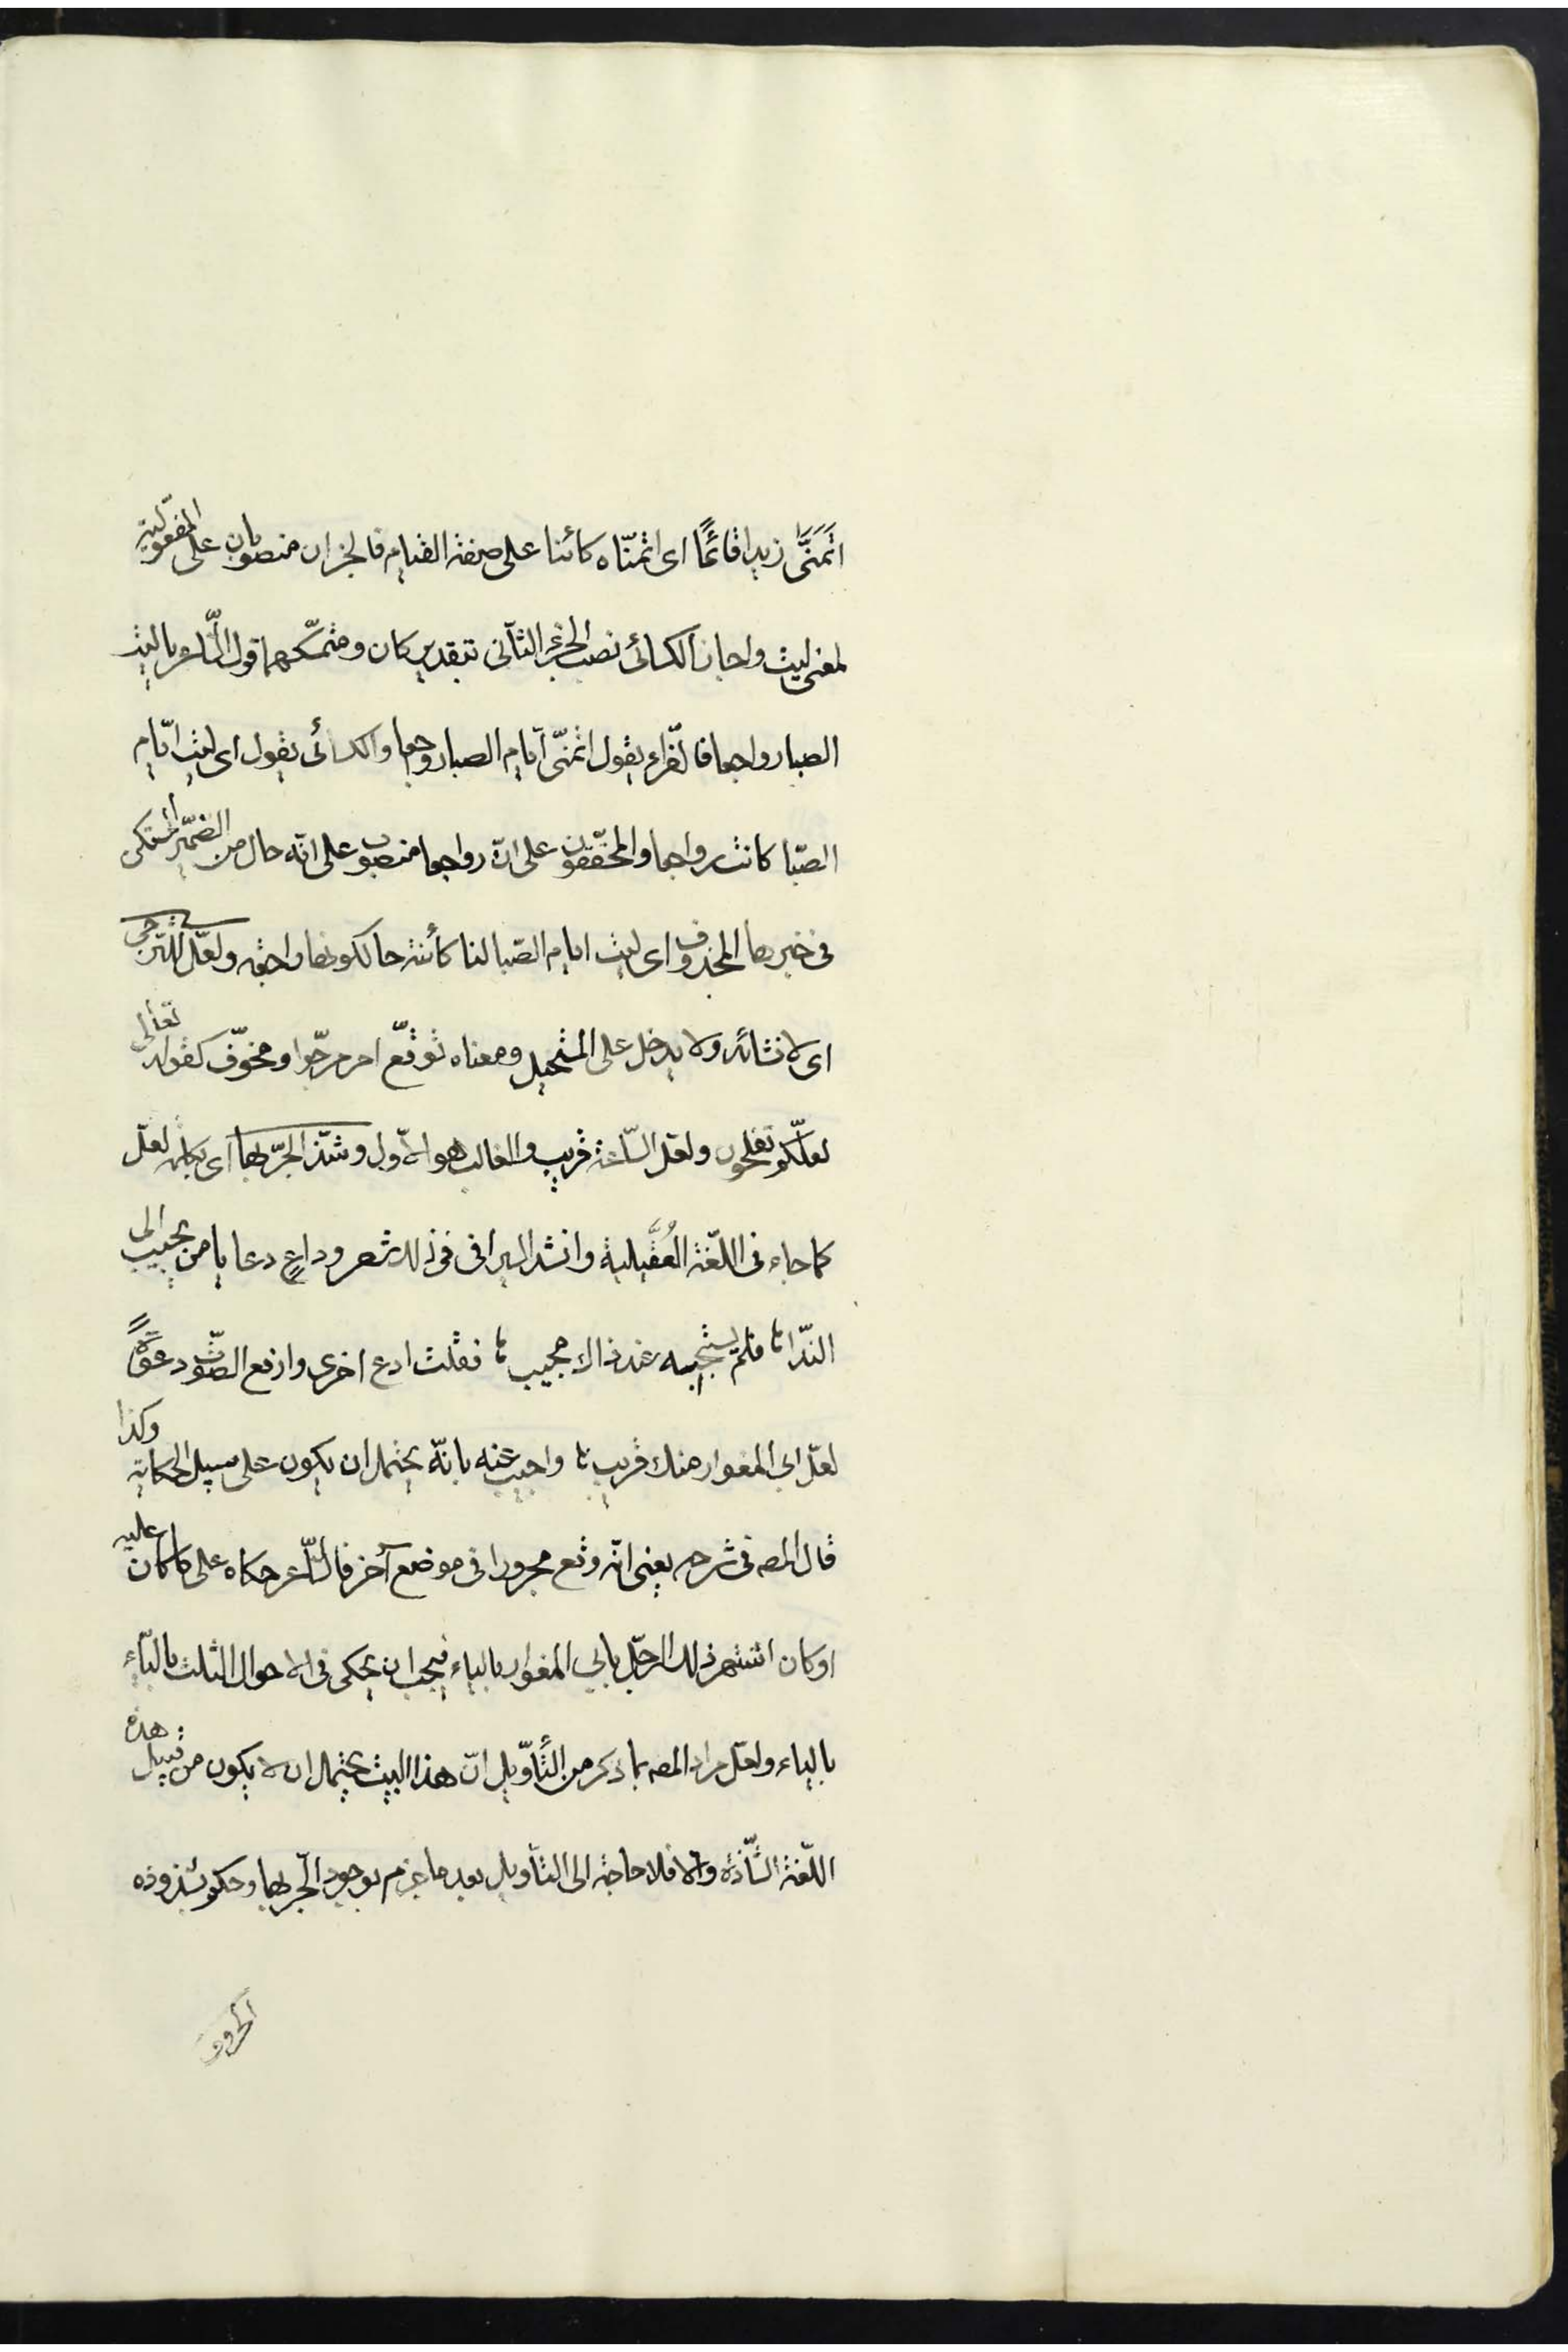 اتَمَنَّى زيدا قائمًا اى اتمنّاه كائنا على صفة القيام فالجزءان منصوبان على المفعوليّة
لمعنى ليت واجاز الكسائى نصب الجزء الثانى بتقدير كان ومتمسّكهما قول الشّاعر يا ليت
الصبا رواجعا فالفرّاء يقول اتمنّى ايّام الصبا رواجعا والكسائى يقول اى ليت ايّام
الصّبا كانت رواجعا والمحقّقون على انّ رواجعا منصوب على انّه حال من الضمير المستكن
فى خبرها المحذوف اى ليت ايام الصّبا لنا كائنة حالكونها راجعة ولعلّ للترجى
اى لانشائه ولا يدخل على المستحيل ومعناه توقّع امر مرجوّا ومخوّف كقوله تعالى
لعلّكم تفلحون ولعل السّاعة قريب والغالب هو الاوّل وشذّ الجرّ بها اى بكلمة لعلّ
كما جاء فى اللّغة العُقَيلية وانشد السيرافى فى ذلك شعر وداعٍ دعا يا من يجيب الى
النّدا فلم يستجبه عند ذاك مجيب فقلت ادع اخرى وارفع الصّوت دعوةً
لعلّ ابى المغوار منك قريب واجيب عنه بانّه يحتمل ان يكون على سبيل الحكاية وكذا
قال المصه فى شرحه يعنى انّه وقع مجرورا فى موضع آخر فالشّاعر حكاه على ما كان عليه
او كان اشتهر ذلك الرجل بابى المغوار بالياء فيجب ان يحكى فى الاحوال الثلث بالياء
بالياء ولعلّ مراد المصه بما ذكر من التّأويل انّ هذا البيت يحتمل ان لا يكون من قبيل هذه
اللّغة الشّاذّة والّا فلا حاجة الى التأويل بعد ما جزم بوجود الجرّ بها وحكم بشذوذه
الحروف